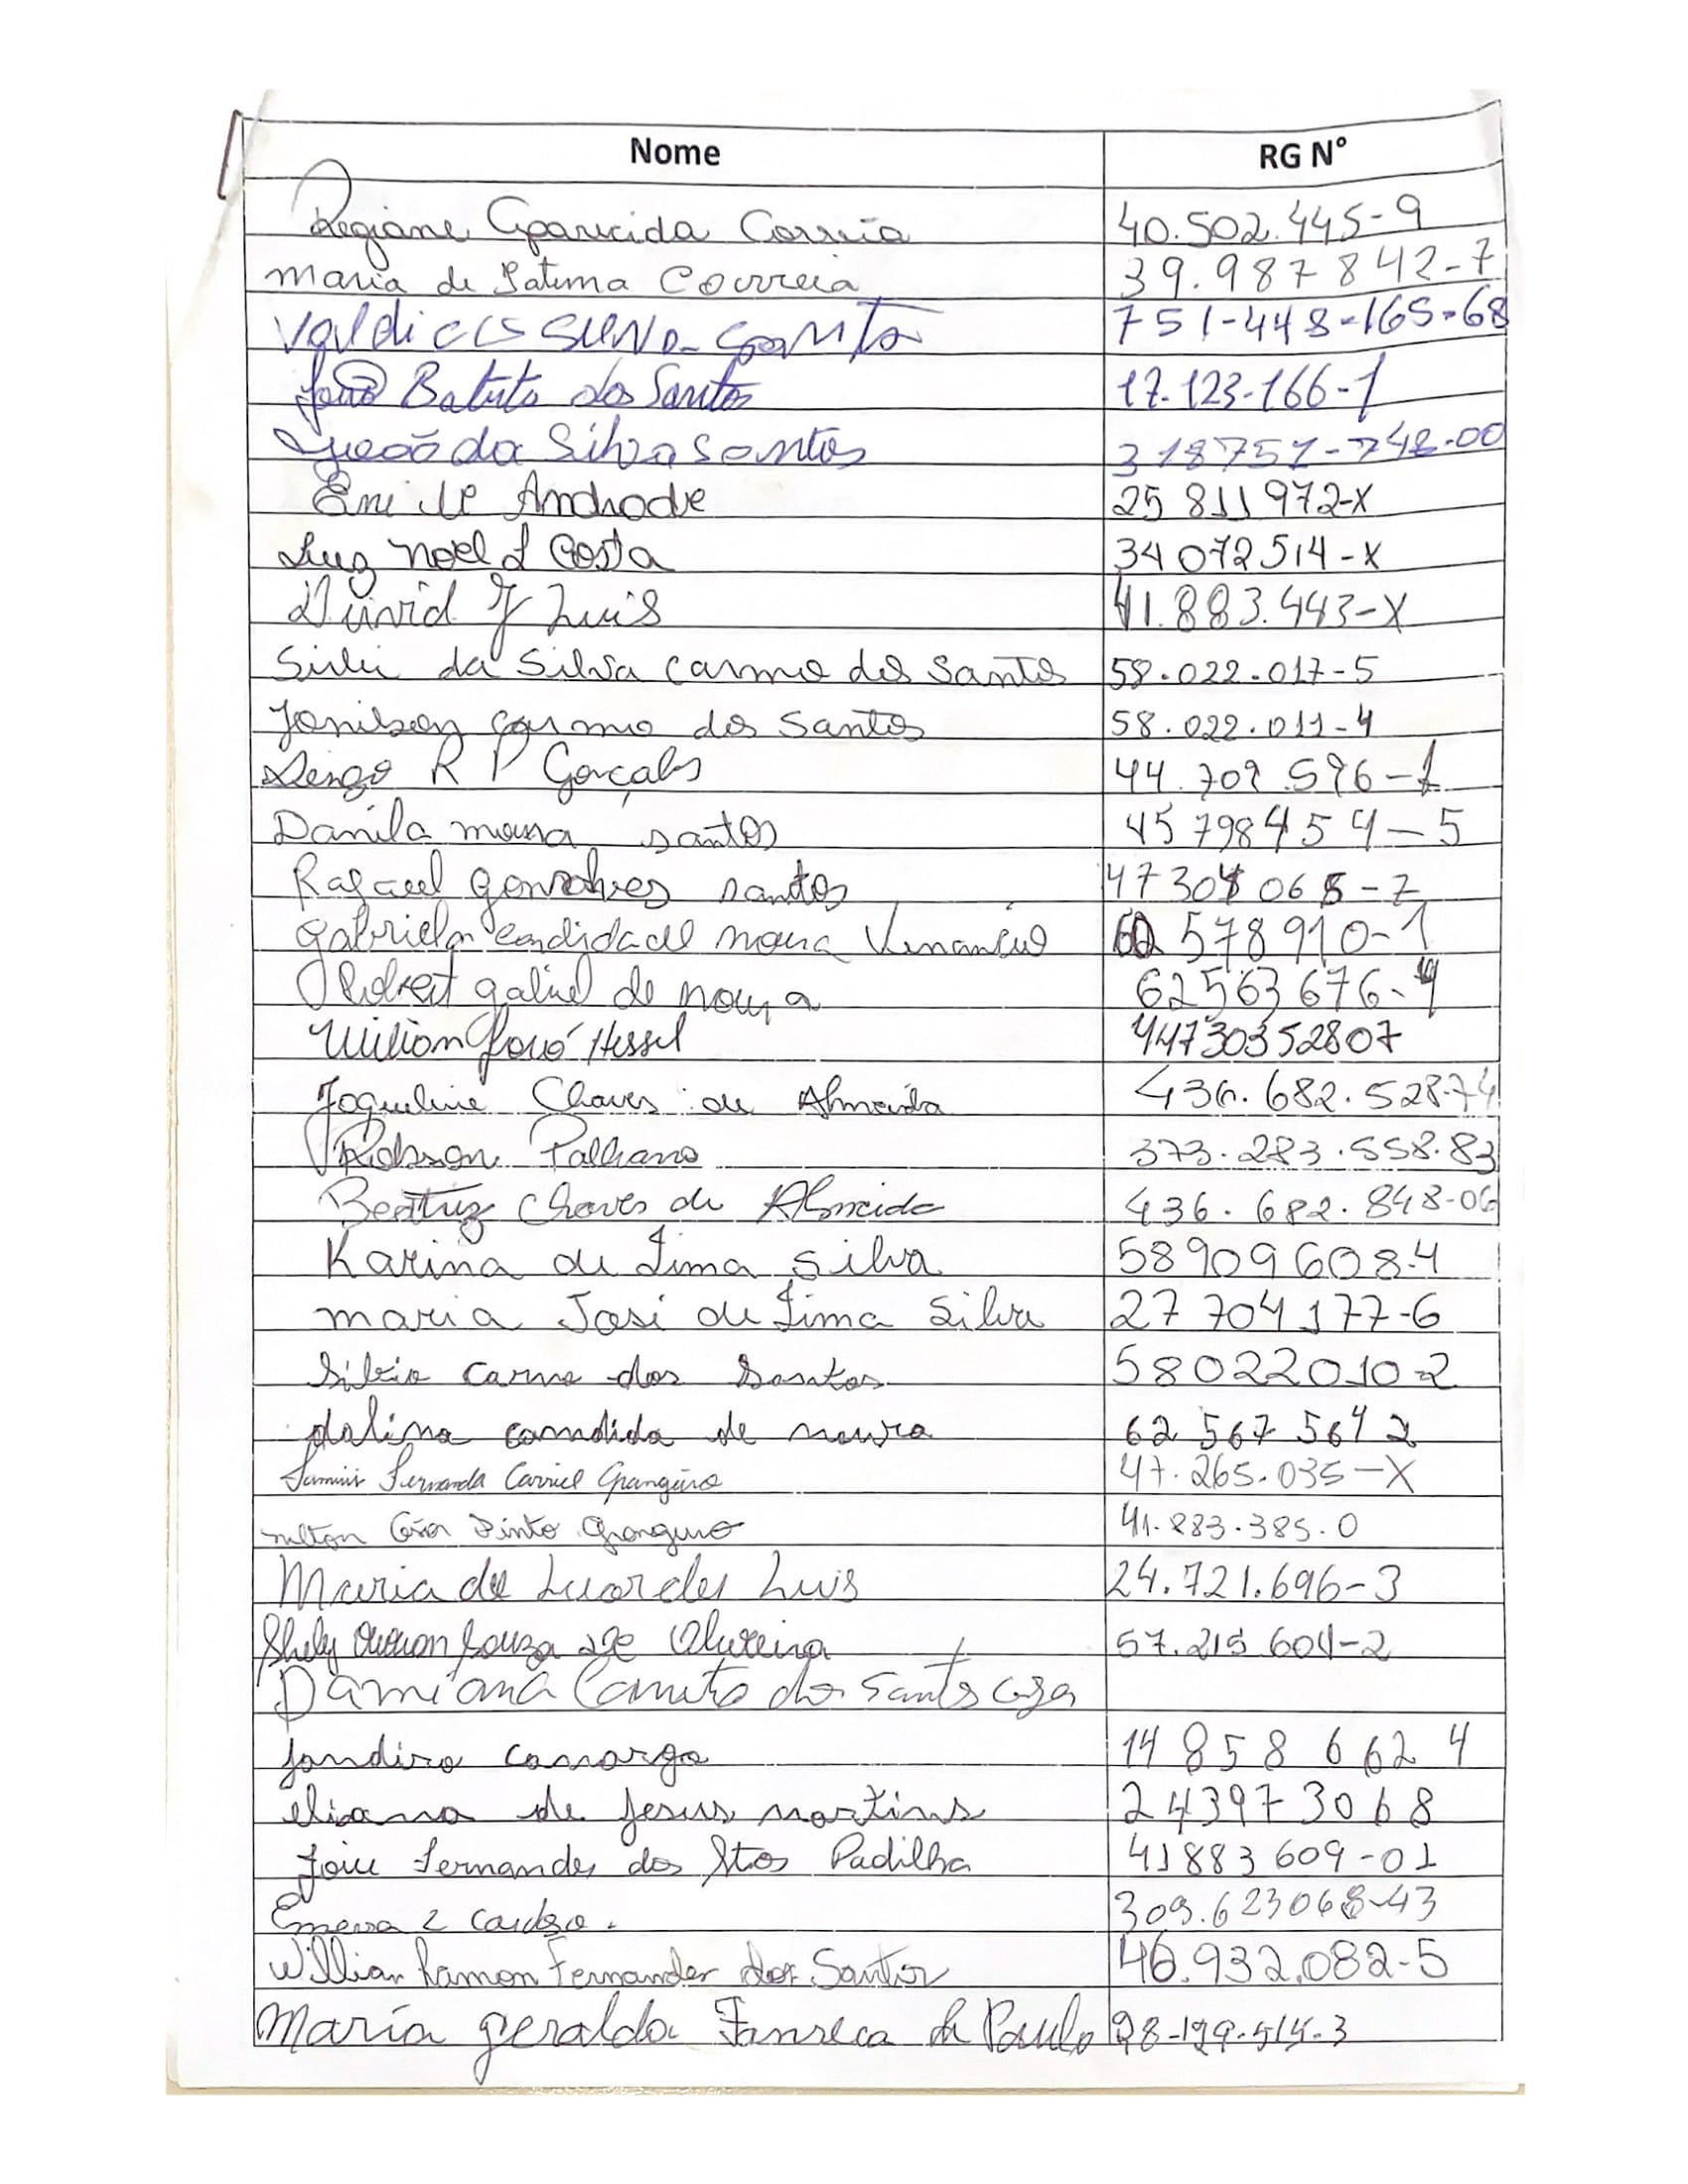 Nome RG N°
Regiane Aparecida Correia 40.502.445-9
Maria de Fatima Correia 39.987842-7
751-448-165-68
João Batista dos Santos 17.123-166-1
da Silva Santos 318751-748-00
Andrade 25 811972-X
Luiz Noel L Costa 34 072514-X
David J Luis 41.883.443-X
Sirlei da Silva Carmo dos Santos 58.022.017-5
Jonilson Carmo dos Santos 58.022.011-4
R P Gonçalves
Danila moura santos 45 798454-5
Rafael Gonsalves santos
Gabriela candida de moura Venancio 578910-1
Robert gabriel de moura 62563676-4
Willion José Hessel 44730352807
Jaqueline Chaves de Almeida 436.682.528-74
Robson Palhano 373.283.558.83
Beatriz Chaves de Almeida 436.682.848-06
Karina de Lima Silva 58909608-4
Maria José de Lima Silva 27 704177-6
Silvio Carmo dos Santos 58022010-2
dalina candida de moura 62 567 564 2
Fernanda Carriel Grangeiro 47.265.035-X
Cesar Pinto Grangeiro 41.883.385.0
Maria de Luordes Luis 24.721.696-3
Souza de Oliveira 57.215.604-2
Damiana dos Santos
Jandira Camargo 14 858 662 4
eliana de Jesus martins 243973068
Joice Fernandes dos Stos Padilha 41883609-01
Cardoso. 309.623068-43
Willian Ramon Fernandes dos Santos 46.932.082-5
Maria geralda Fonseca de Paulo